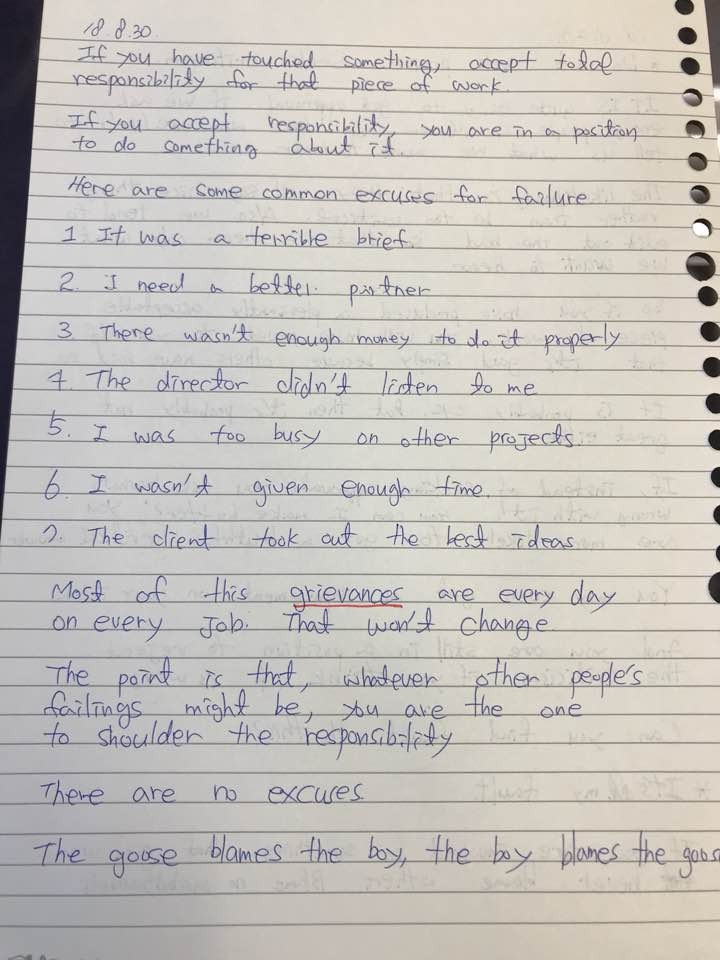 18.8.30.
If you have touched something, accept total
responsibility for that piece of work.
If you accept responsibility, you are in a position
to do something about it.
Here are some common excuses for failure
1. It was a terrible brief.
2. I need a better partner
3. There wasn't enough money to do it properly
4. The director didn't listen to me
5. I was too busy on other projects.
6. I wasn't given enough time.
7. The client took out the best ideas
Most of this grievances are every day
on every job. That won't change
The point is that, whatever other people's
failings might be, you are the one
to shoulder the responsibility
There are no excuses.
The goose blames the boy, the boy blames the goos